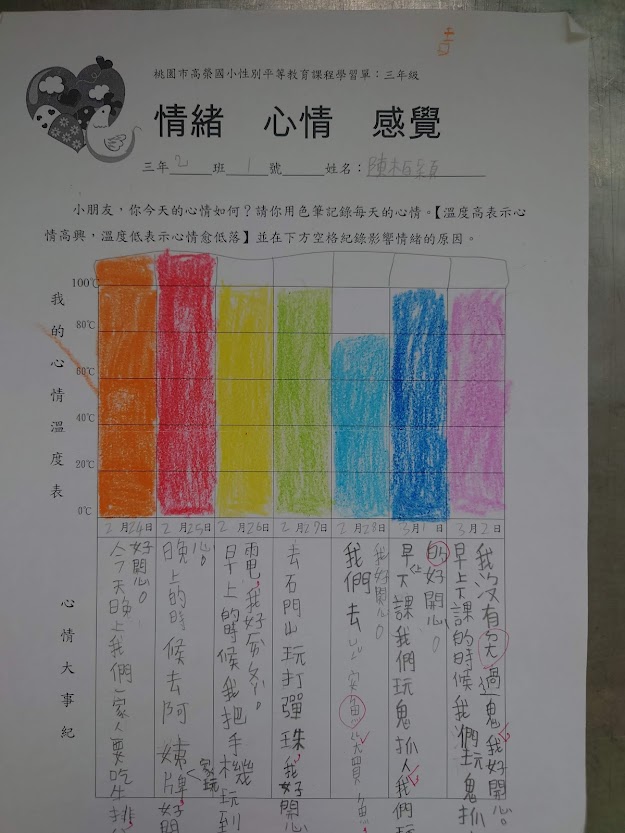 桃園市高榮國小性別平等教育課程學習單：三年級
情緒　心情　感覺
三年2班1號　姓名：陳柏
小朋友，你今天的心情如何？請你用色筆記錄每天的心情。【溫度高表示心
情高興，溫度低表示心情愈低落】並在下方空格紀錄影響情緒的原因。
我的心情溫度表
100℃
80℃
60℃
40℃
20℃
0℃
2月24日
2月25日
2月26日
2月27日
2月28日
3月1日
3月2日
心情大事紀
今天晚上我們一家人要吃牛排
好開心。
晚上的時候去阿姨家玩牌好開
心。
早上的時候我把手機玩到
電，我好
去石門山玩打彈珠，我好開心
我們去
我好開心。
早上下課我們玩鬼抓人我們玩
的好開心。
早上下課的時候我們玩鬼抓
我沒有當過鬼我好開心。